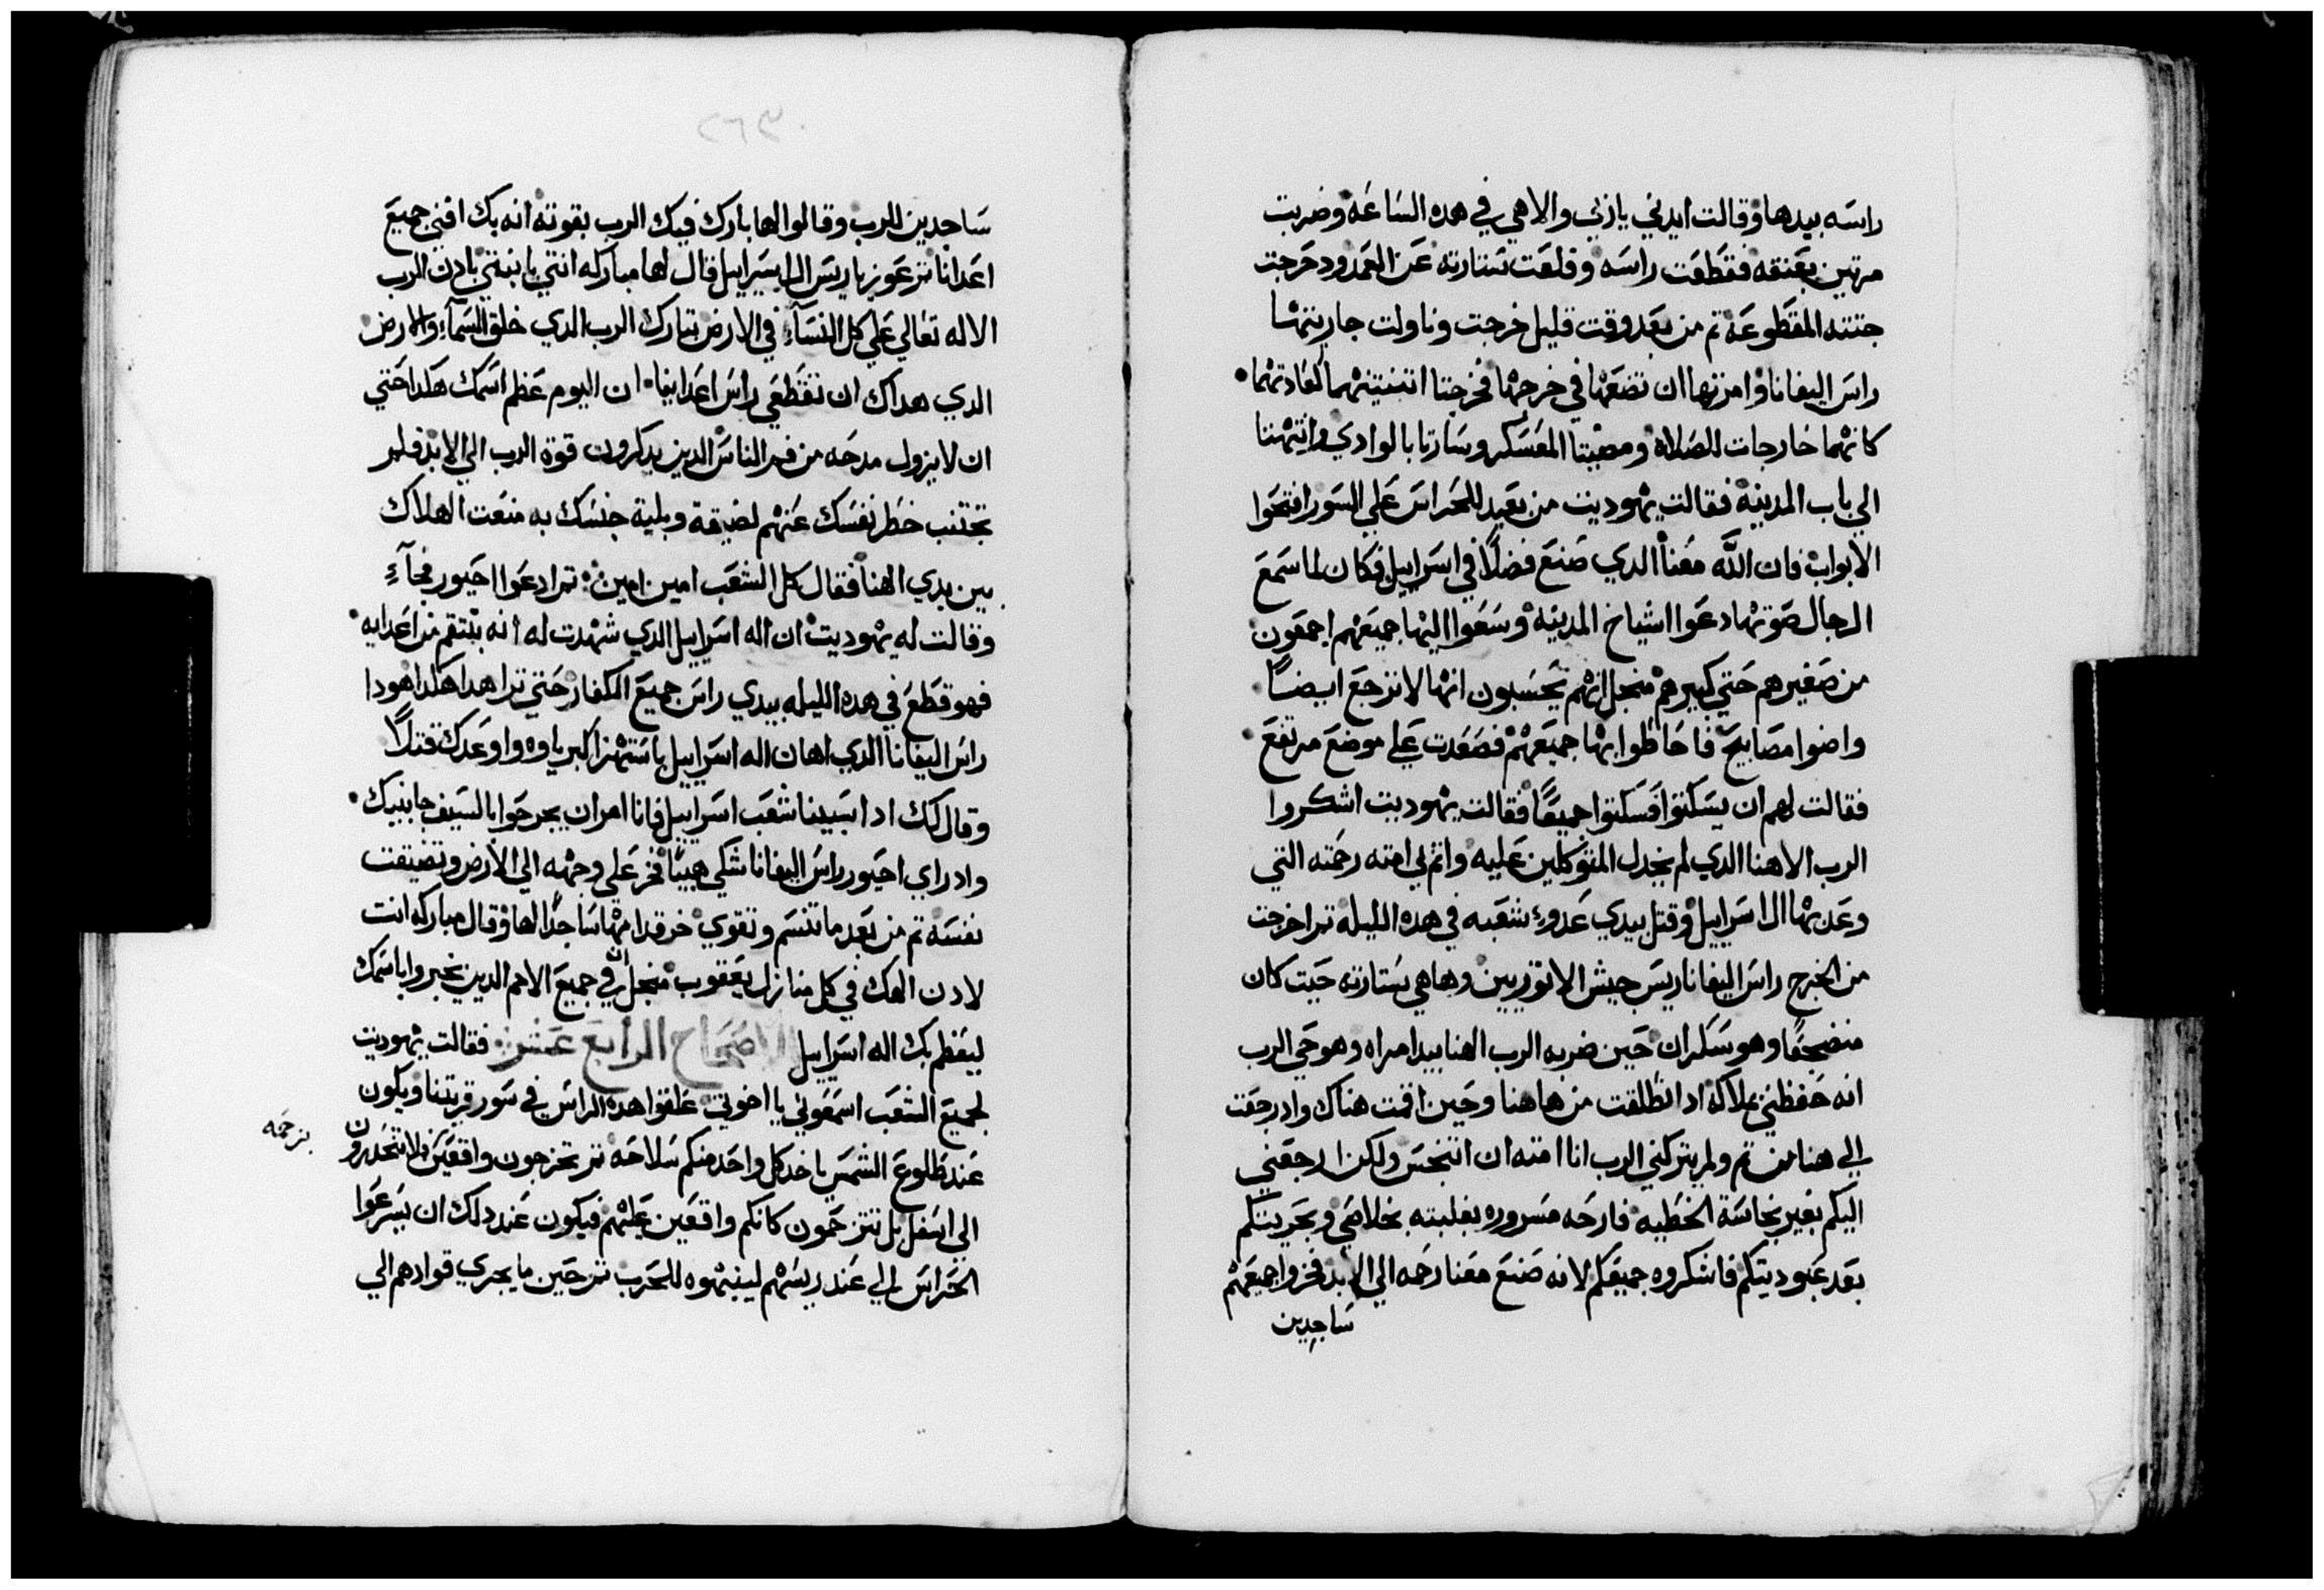 راسه بيدها وقالت ايدني ياربي والاهي في هده الساعه وضربت
مرتين بعنقه فقطعت راسه وقلعت ستارته عن العمد ودحرجت
جتته المقطوعة تم من بعد وقت قليل خرجت وناولت جاريتها
راس اليفانا وامرتها ان تضعها في خرجها فخرجتا اتنتينهما كعادتهما
كانهما خارجات للصلاة ومضيتا المعسكر وسارتا بالوادي واتيهنتا
الي باب المدينة فقالت يهوديت من بعيد للحراس علي السور افتحوا
الابواب فان الله معنا الدي صنع فضلا في اسراييل فكان لما سمع
الرجال صوتها دعوا اشياخ المدينة وسعوا اليها جميعهم اجمعون
من صغيرهم حتي كبيرهم منجل انهم يحسبون انها لا ترجع ايضا
واضوا مصابيح فاحاطوا بها جميعهم فصعدت علي موضع مرتفع
فقالت لهم ان يسكتوا فسكتوا جميعا فقالت يهوديت اشكروا
الرب الاهنا الدي لم يخدل المتوكلين عليه واتم لي امته رحمته التي
وعد بها ال اسراييل وقتل بيدي عدو شعبه في هده الليله تم اخرجت
من الخرج راس اليفانا ريس جيش الاتوريين وها هي ستارته حيت كان
منضجعا وهو سكران حين ضربه الرب الهنا بيد امراه وهو حي الرب
انه حفظني بملاكه اد انطلقت من هاهنا وحين اقمت هناك واد رجعت
الي هنا من تم ولم يتركني الرب انا امته ان اتنجس ولكن ارجعني
اليكم بغير نجاسة الخطيه فارحه مسروره بغلبته بخلاصي وبحريتكم
بعد عبوديتكم فاشكروه جميعكم لانه صنع معنا رحمه الي الابد فخروا جميعهم
ساجدين
٢٦٣
ساجدين للرب وقالوا لها بارك فيك الرب بقوته انه بك افني جميع
اعدانا تم عوزيا ريس ال اسراييل قال لها مباركه انتي يا ابنتي بادن الرب
الاله تعالي علي كل النسآء في الارض تبارك الرب الدي خلق السمآء والارض
الدي هداك ان تقطعي راس اعداينا ان اليوم عظم اسمك هكدا حتي
ان لا يزول مدحه من فم الناس الدين يدكرون قوة الرب الي الابد فلم
تجتنب خطر نفسك عنهم لضيقة وبلية جنسك به منعت الهلاك
بين يدي الهنا فقال كل الشعب امين امين تم ادعوا احيور فجآء
وقالت له يهوديت ان اله اسراييل الدي شهدت له انه ينتقم من اعدايه
فهو قطع في هده الليله بيدي راس جميع الكفار حتي ترا هدا هكدا هودا
راس اليفانا الدي اهان اله اسراييل باستهزا كبرياوه واوعدك قتلا
وقال لك ادا سبينا شعب اسراييل فانا امر ان يجرحوا بالسيف جانبيك
واد راي احيور راس اليفانا شكي هيبا فخر علي وجهه الي الارض وتضيقت
نفسه تم من بعد ما تنسم وتقوي خر قدامها ساجدا لها وقال مباركه انت
لادن الهك في كل منازل يعقوب منجل ان في جميع الامم الدين يخبروا باسمك
ليعظم بك اله اسراييل الاصحاح الرابع عشر فقالت يهوديت
لجميع الشعب اسمعوني يا اخوتي علقوا هده الراس في سور قريتنا ويكون
عند طلوع الشمس ياخد كل واحد منكم سلاحه تم تخرجون واقفين فلا تنحدرون
بزحمه
الي اسفل بل تتزحمون كانكم واقعين عليهم فيكون عند دلك ان يسرعوا
الحراس الي عند ريسهم لينبهوه للحرب تم حين ما يجري قوادهم الي